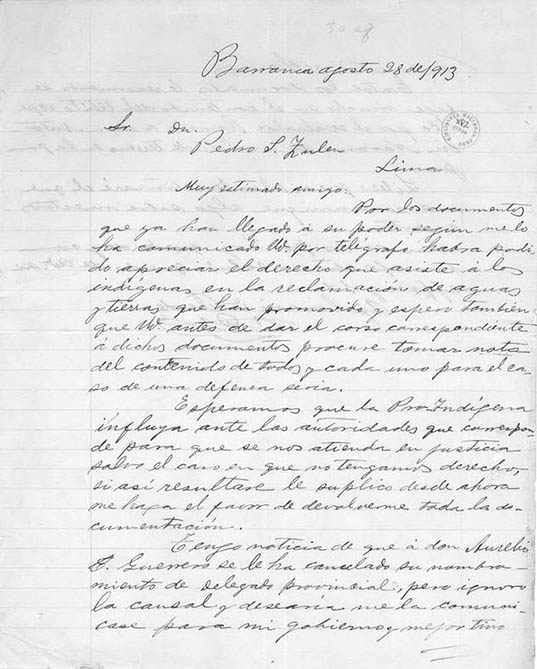 Barranca agosto 28 de/913
Sr. Dn.
Pedro S. Zulen
Lima
Muy estimado amigo:
Por los documentos
que ya han llegado á su poder segun me lo
ha comunicado Ud. por telégrafo habra podi
do apreciar el derecho que asiste á los
indígenas en la reclamacion de aguas
y tierras que han promovido y espero tambien
que Ud. antes de dar el curso correspondiente
á dichos documentos procure tomar nota
del contenido de todos y cada uno para el ca-
so de una defensa seria.
Esperamos que la Pro-Indígena
influya ante las autoridades que correspon-
de para que se nos atienda en justicia
salvo el caso en que no tengamos derecho,
si así resultase le suplico desde ahora
me haga el favor de devolverme toda la do-
cumentación.
Tengo noticia de que á don Aurelio
Guerrero se le ha cancelado su nombra-
miento de delegado provincial, pero ignoro
la causal y desearia me la comuni-
case para mi gobierno y mejor tino